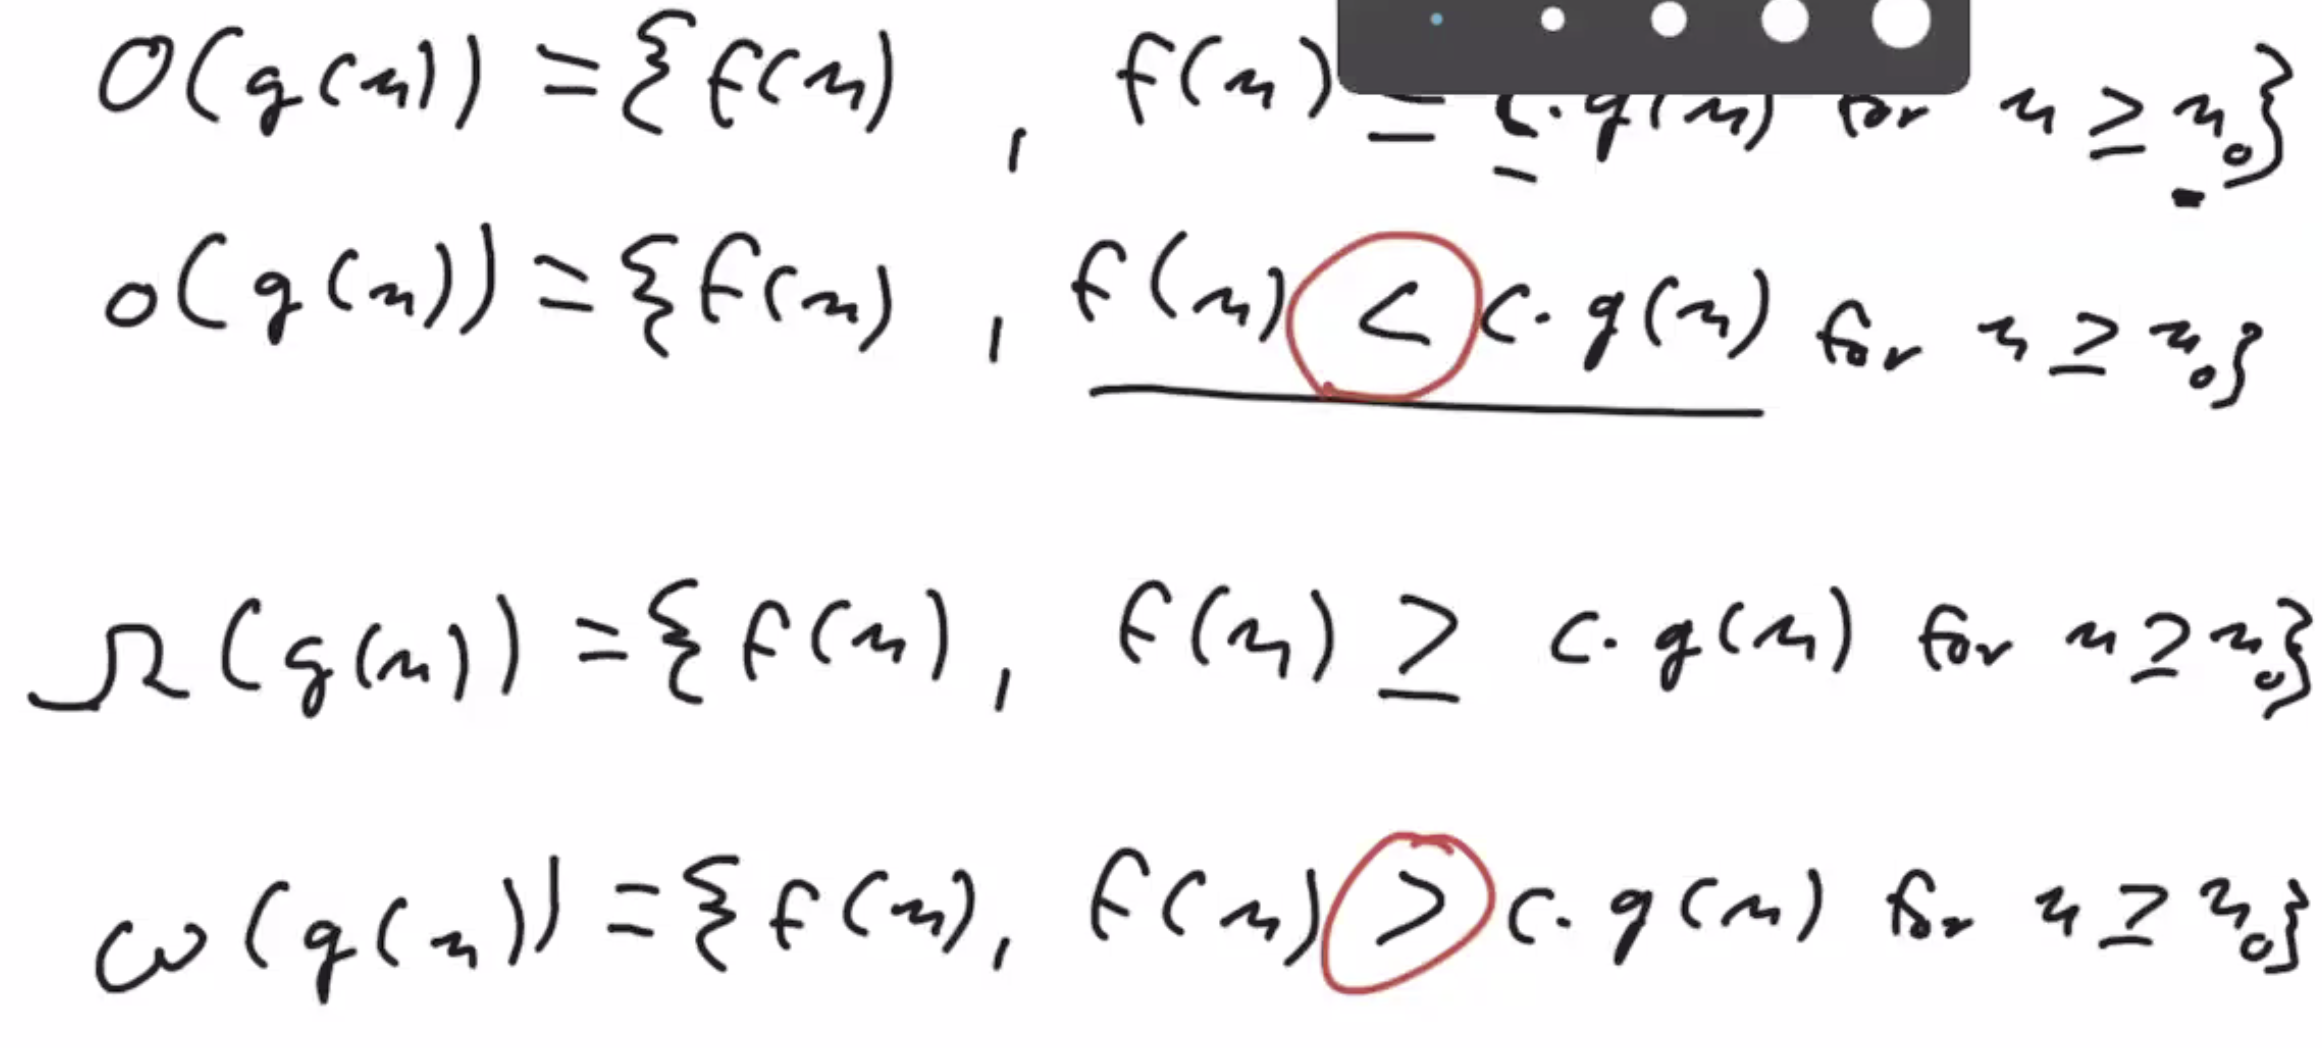 O(g(n)) = {f(n) , f(n) ≤ c·g(n) for n ≥ n₀}
o(g(n)) = {f(n) , f(n) < c·g(n) for n ≥ n₀}
Ω(g(n)) = {f(n), f(n) ≥ c·g(n) for n ≥ n₀}
ω(g(n)) = {f(n), f(n) > c·g(n) for n ≥ n₀}